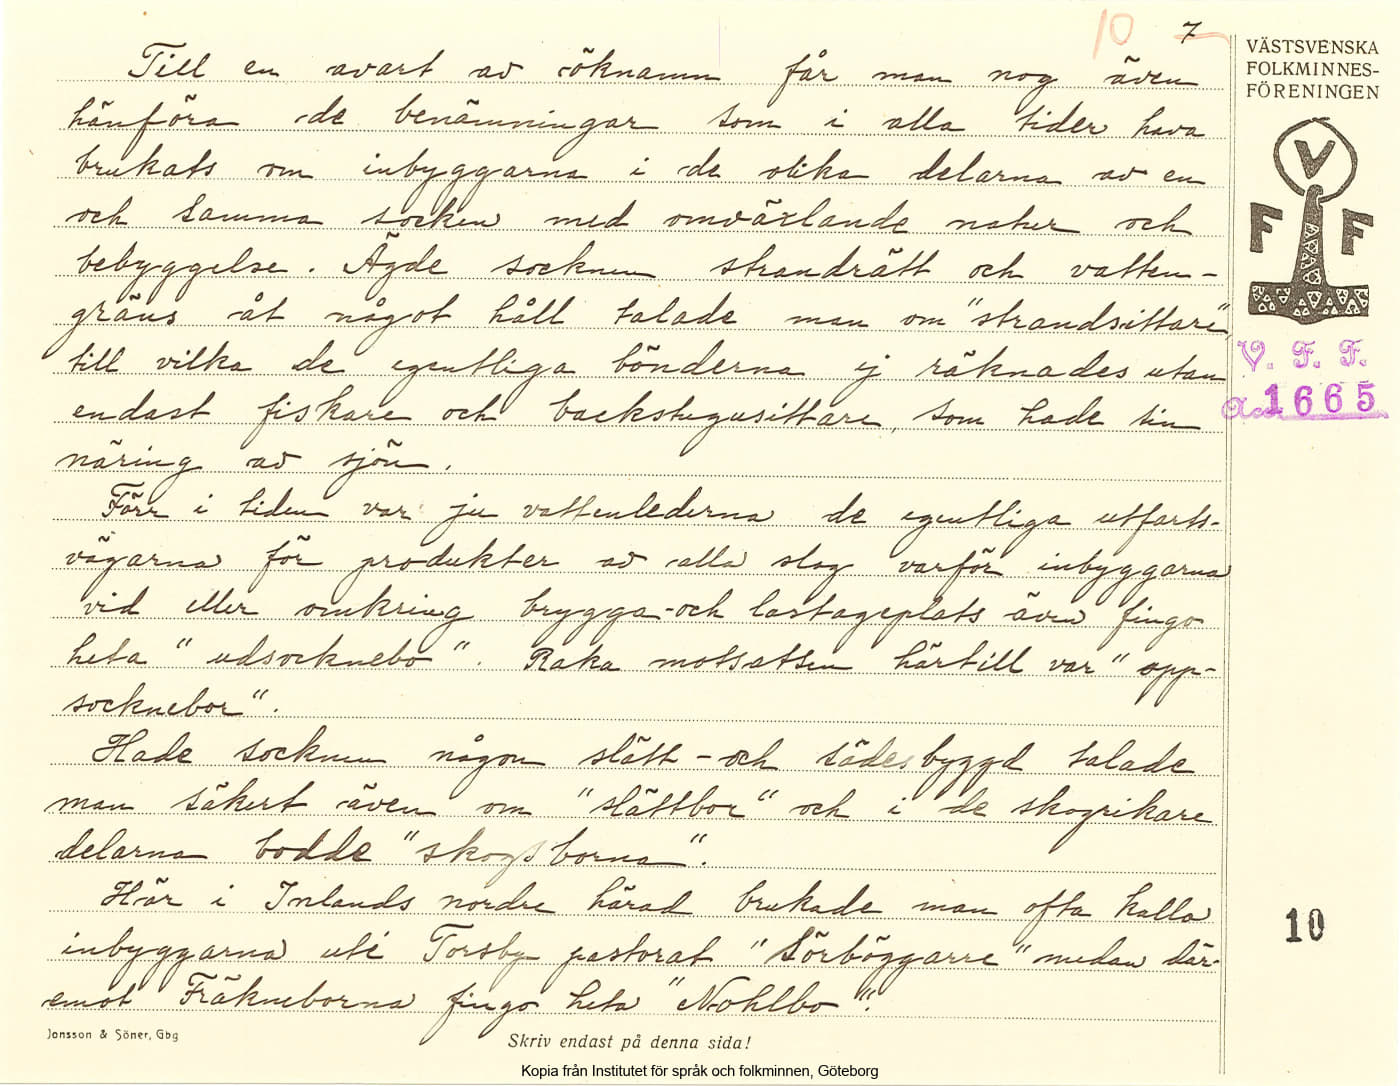 10 7
Till en avart av öknamn får man nog även
hänföra de benämningar som i alla tider hava
brukats om inbyggarna i de olika delarna av en
och samma socken med omväxlande natur och
bebyggelse. Ägde socknen strandrätt och vatten-
gräns åt något håll talade man om "strandsittare",
till vilka de egentliga bönderna ej räknades utan
endast fiskare och backstugusittare, som hade sin
näring av sjön.
Förr i tiden var ju vattenlederna de egentliga utfarts-
vägarna för produkter av alla slag varför inbyggarna
vid eller omkring brygga- och lastageplats även fingo
heta "udsocknebo". Raka motsatsen härtill var "opp-
socknebor".
Hade socknen någon slätt- och sädesbygd talade
man säkert även om "slättbor" och i de skogrikare
delarna bodde "skogsborna".
Här i Inlands nordre härad brukade man ofta kalla
inbyggarna uti Torsby pastorat "Sörböggarre" medan där-
emot Fräkneborna fingo heta "Nohlbo".
VÄSTSVENSKA
FOLKMINNES-
FÖRENINGEN
V
F F
V. F. F.
Acc. 1665
10
Jonsson & Söner, Gbg
Skriv endast på denna sida!
Kopia från Institutet för språk och folkminnen, Göteborg